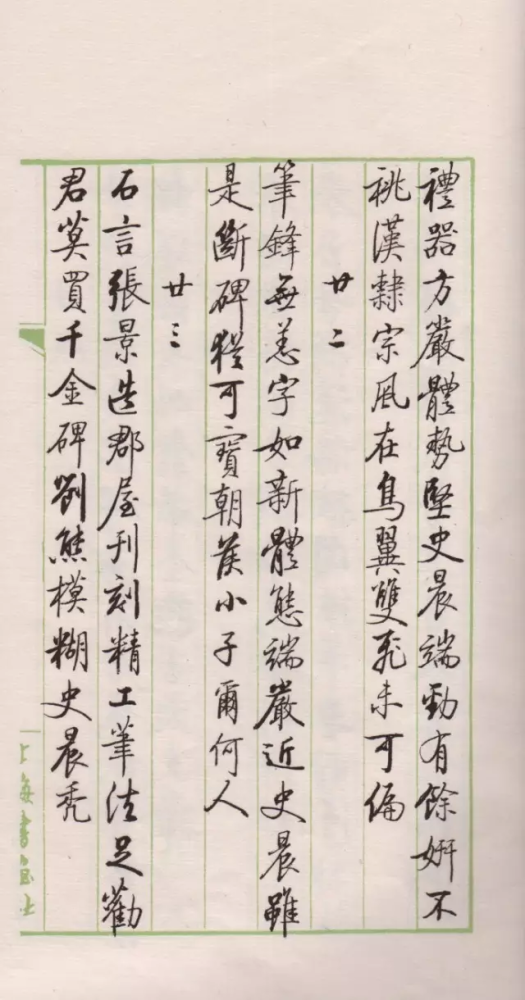 禮器方嚴體勢堅史晨端勁有餘妍不
祧漢隸宗風在鳥翼雙飛未可偏
廿二
筆鋒無恙字如新體態端嚴近史晨雖
是斷碑猶可寶朝侯小子爾何人
廿三
石言張景造郡屋刊刻精工筆法足勸
君莫買千金碑劉熊模糊史晨禿
上海書画社